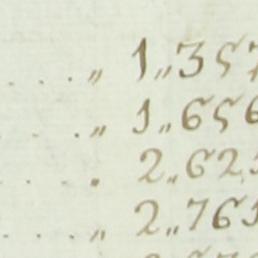 . . . . „ 1„357
. . . „ 1„656
. . . . 2„623
. . . . „ 2„761